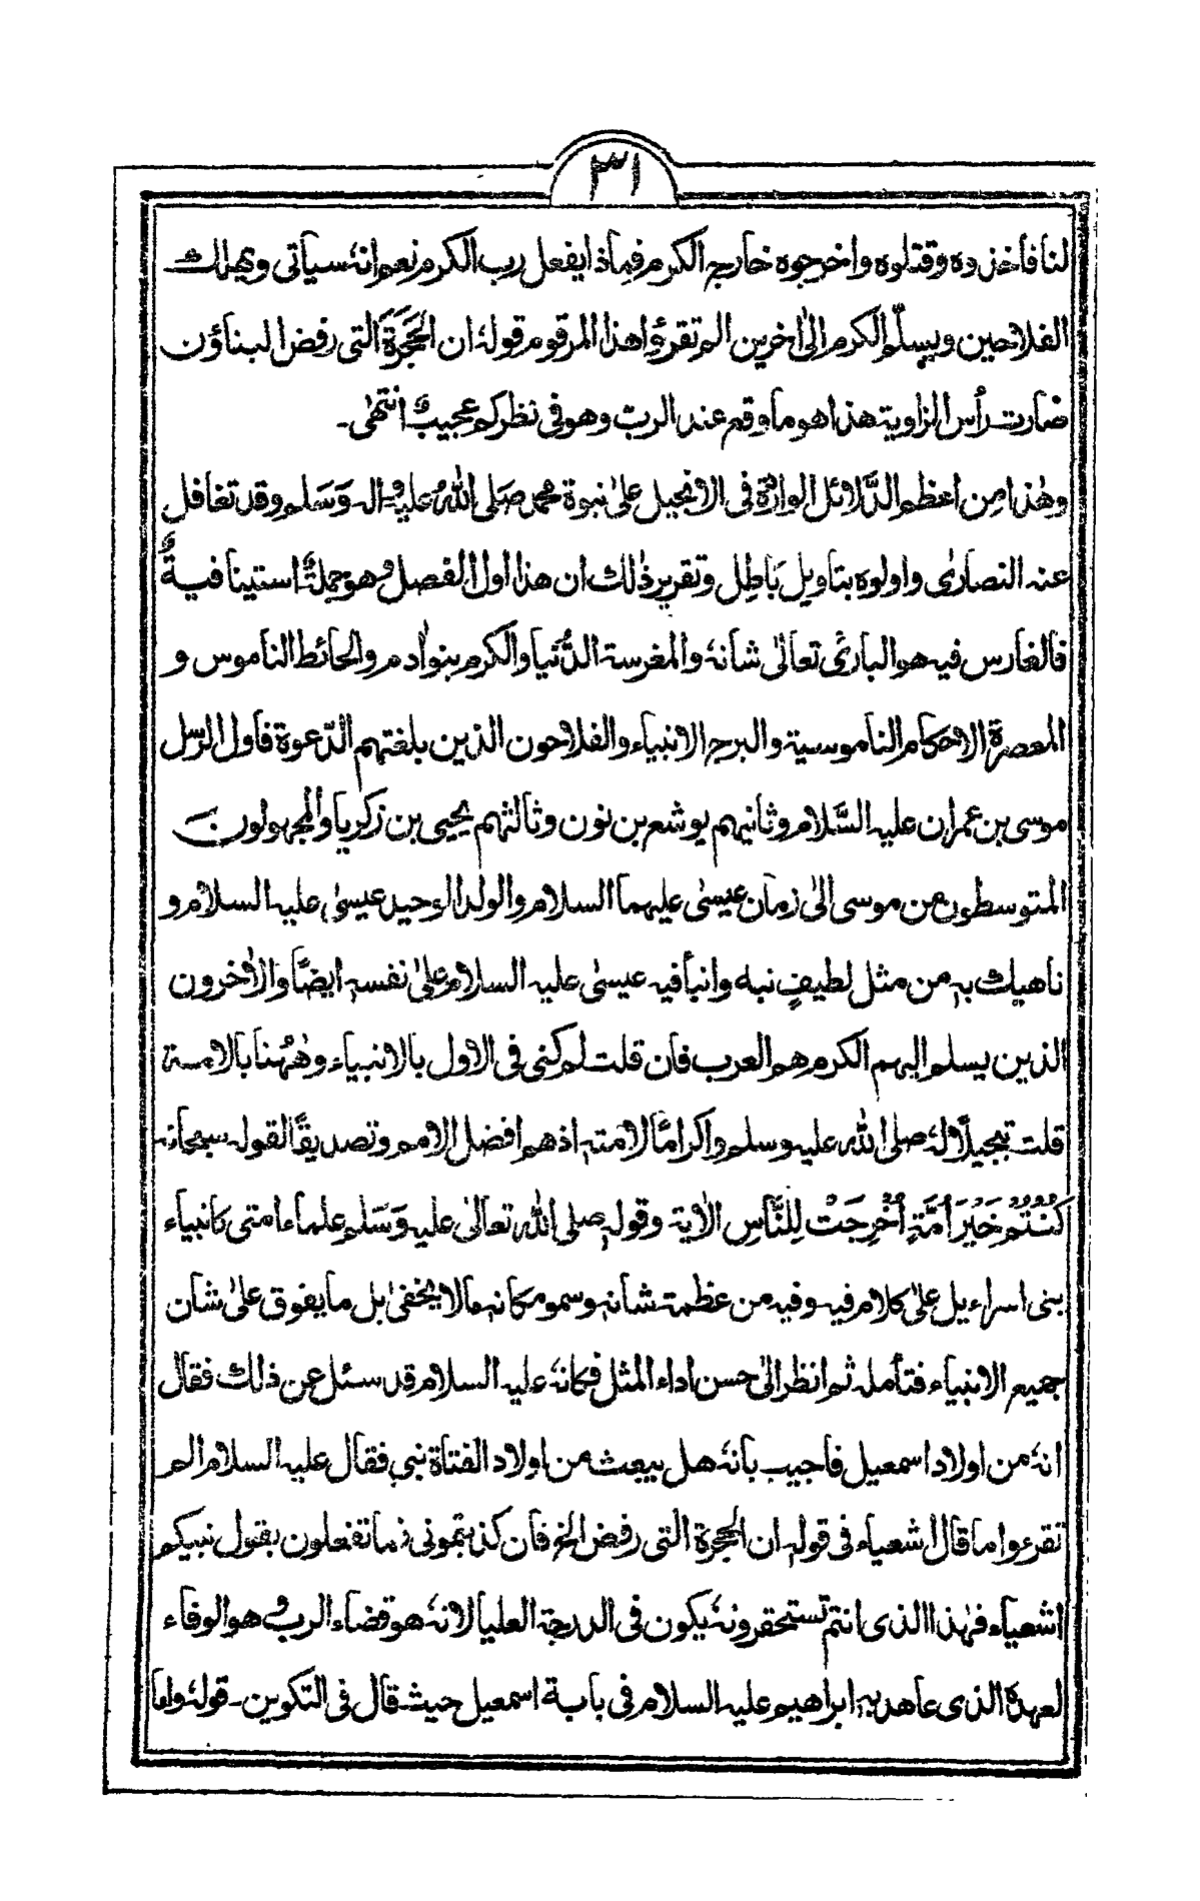 ٣١
لنا فاخذوه وقتلوه واخرجوه خارج الكرم فماذا يفعل رب الكرم نعم انه سيأتى ويهلك
الفلاحين ويسلّم الكرم الى اخرين الم تقرؤا هذا المرقوم قوله ان الحَجَرَةَ التى رفض البناؤن
صارت رأس الزاوية هذا هو ما وقع عند الرب وهو فى نظركم عجيب انتهى۔
وهذا من اعظم الدَّلائل الواردة فى الانجيل على نبوة محمد صَلى اللهُ عليه واله وَسَلم وقد تغافل
عنه النصارى واولوه بتاويل بَاطِل وتقرير ذلك ان هذا اول الفصل وهو جملةٌ استينافيةٌ
فالغارس فيه هو البارئ تعالى شانهٗ والمغرسة الدُّنيا والكرم بنو اٰدم والحائط الناموس و
المعصرة الاحكام الناموسية والبرج الانبياء والفلاحون الذين بلغتهم الدّعوة فاول الرسل
موسى بن عمران عليه السَّلام وثانيهم يوشع بن نون وثالثهم يحيى بن زكريا والمجهولون
المتوسطون من موسى الى زمان عيسى عليهما السلام والولد الوحيد عيسى عليه السلام و
ناهيك به من مثل لطيفٍ نبه وانبأ فيه عيسى عليه السلام على نفسه ايضًا والاٰخرون
الذين يسلم اليهم الكرم هم العرب فان قلت لم كنى فى الاول بالانبياء وههُنا بالامة
قلت تبجيلًا لهٗ صلى الله عليه وسلم واكرامًا لامته اذ هم افضل الامم وتصديقًا لقوله سبحانه
كُنْتُمْ خَيْرَ اُمَّةٍ اُخْرِجَتْ لِلنَّاسِ الاٰية وقوله صلى الله تعالى عليه وَسَلم علماء امتى كانبياء
بنى اسراءيل على كلام فيه وفيه من عظمة شانه وسمو مكانه مالا يخفى بل ما يفوق على شان
جميع الانبياء فتأمله ثم انظر الى حسن اداء المثل فكانهٗ عليه السلام قد سئل عن ذالك فقال
انهٗ من اولاد اسمعيل فاجيب بانهٗ هل يبعث من اولاد الفتاة نبى فقال عليه السلام الم
تقرءوا ما قال اشعياء فى قوله ان الحجرة التى رفض الخ فان كذبتمونى فما تفعلون بقول نبيكم
اشعياء فهذا الذى انتم تستحقرونهٗ يكون فى الدرجة العليا لانهٗ هو قضاء الرب وهو الوفاء
لعهدة الذى عاهد به ابراهيم عليه السلام فى بابة اسمعيل حيث قال فى التكوين۔ قولهٗ واما